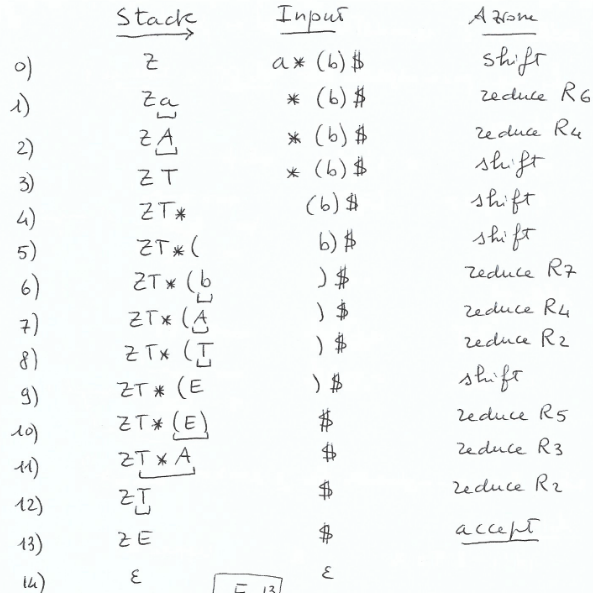 Stack Input Azione
0) Z a * (b) $ shift
1) Z a * (b) $ reduce R6
2) Z A * (b) $ reduce R4
3) Z T * (b) $ shift
4) Z T * (b) $ shift
5) Z T * ( b) $ shift
6) Z T * (b ) $ reduce R7
7) Z T * (A ) $ reduce R4
8) Z T * (T ) $ reduce R2
9) Z T * (E ) $ shift
10) Z T * (E) $ reduce R5
11) Z T * A $ reduce R3
12) Z T $ reduce R2
13) Z E $ accept
14) ε ε